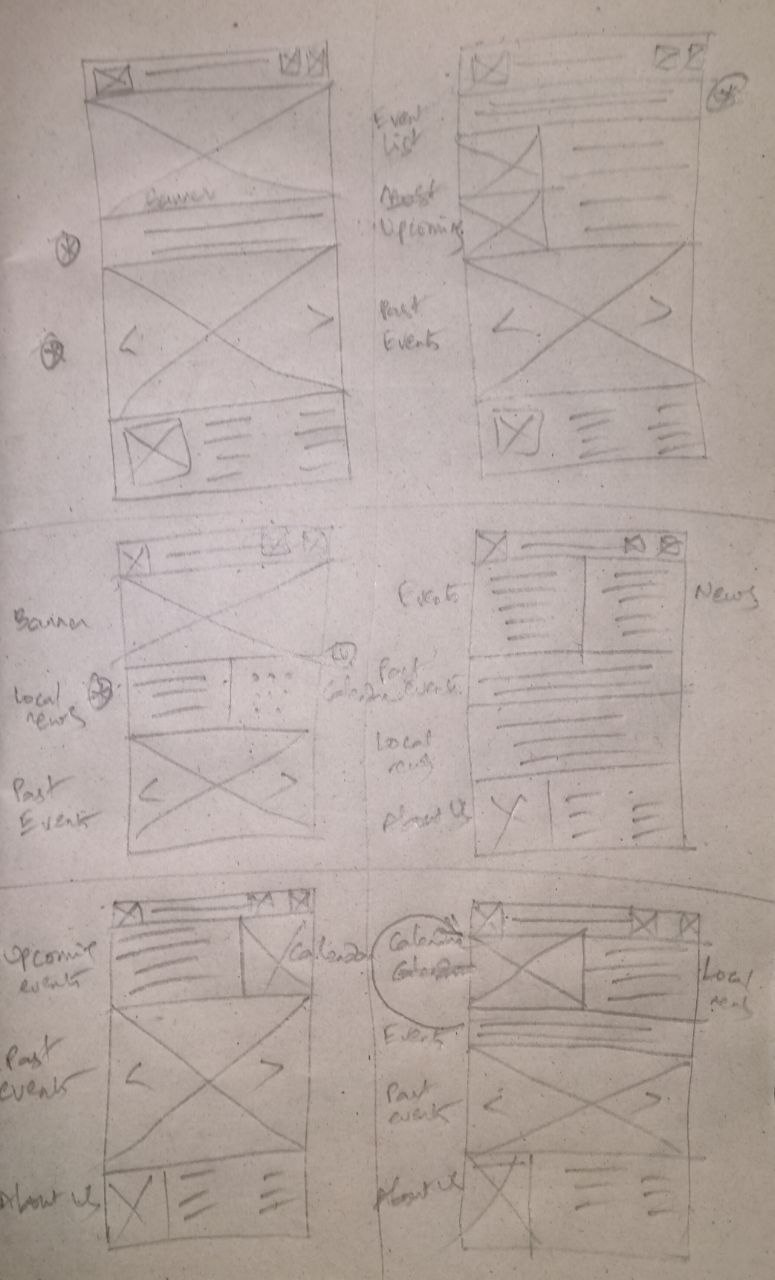 Banner
Event
List
Most
Upcoming
Past
Events
Banner
Local
news
Past
Events
Events
News
Past
events
Calendar
Local
news
About Us
Upcoming
events
Calendar
Past
events
About Us
Calendar
Calendar
Local
news
Events
Past
events
About Us